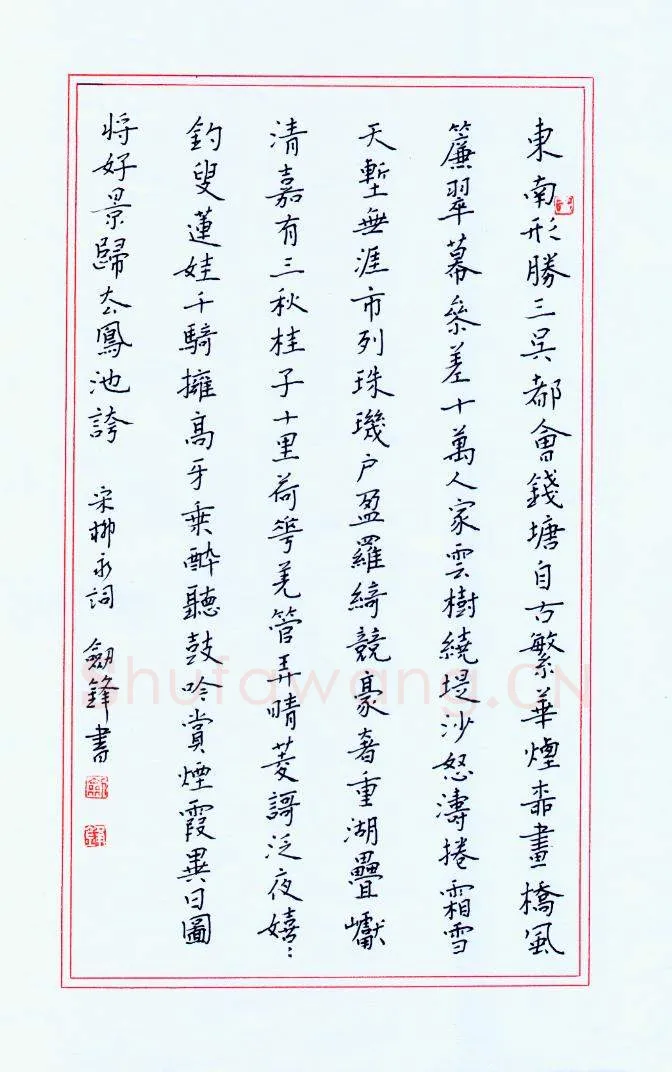 東南形勝三吴都會錢塘自古繁華煙柳畫橋風
簾翠幕參差十萬人家雲樹繞堤沙怒濤捲霜雪
天塹無涯市列珠璣户盈羅綺競豪奢重湖疊巘
清嘉有三秋桂子十里荷花羌管弄晴菱謌泛夜嬉:
釣叟蓮娃千騎擁高牙乘醉聽鼓吟賞煙霞異日圖
將好景歸去鳳池誇 宋柳永詞 劍鋒書
Shufawang.CN